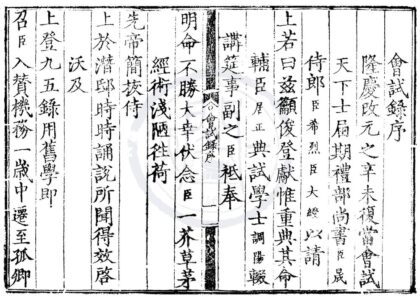 會試錄序
隆慶改元之辛未復當會試
天下士屆期禮部尚書臣晟
侍郎臣希烈臣大綬以請
上若曰茲籲俊登獻惟重典其命
輔臣居正典試學士調陽輟
講筵事副之臣祗奉
明命不勝大幸伏念臣一芥草茅
經術淺陋徃荷
先帝簡拔侍
上於潛邸時時誦說所聞得效啓
沃及
上登九五錄用舊學即
召臣入贊機務一歲中遷至孤卿
會試錄序